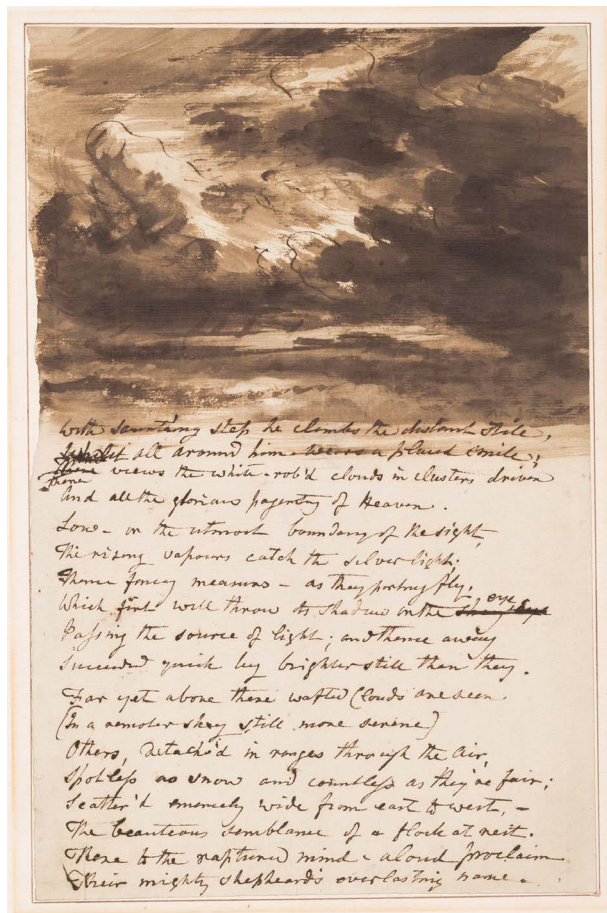 With sauntering step he climbs the distant stile,
Whilst all around him wears a placid smile;
There views the white-rob'd clouds in clusters driven
And all the glorious pagentry of Heaven.
Low - on the utmost boundary of the sight,
The rising vapours catch the silver light;
Thence fancy measures - as they parting fly,
Which first will throw its shadow on the eye
Passing the source of light; and thence away
Succeeded quick by brighter still than they.
Far yet above these wafted Clouds are seen
(In a remoter sky, still more serene)
Others, detach'd in ranges through the Air,
Spotless as snow and countless as they're fair;
Scatter'd immensely wide from east to west, -
The beauteous semblance of a flock at rest.
These to the raptured mind - aloud proclaim
Their mighty shepheard's everlasting name.